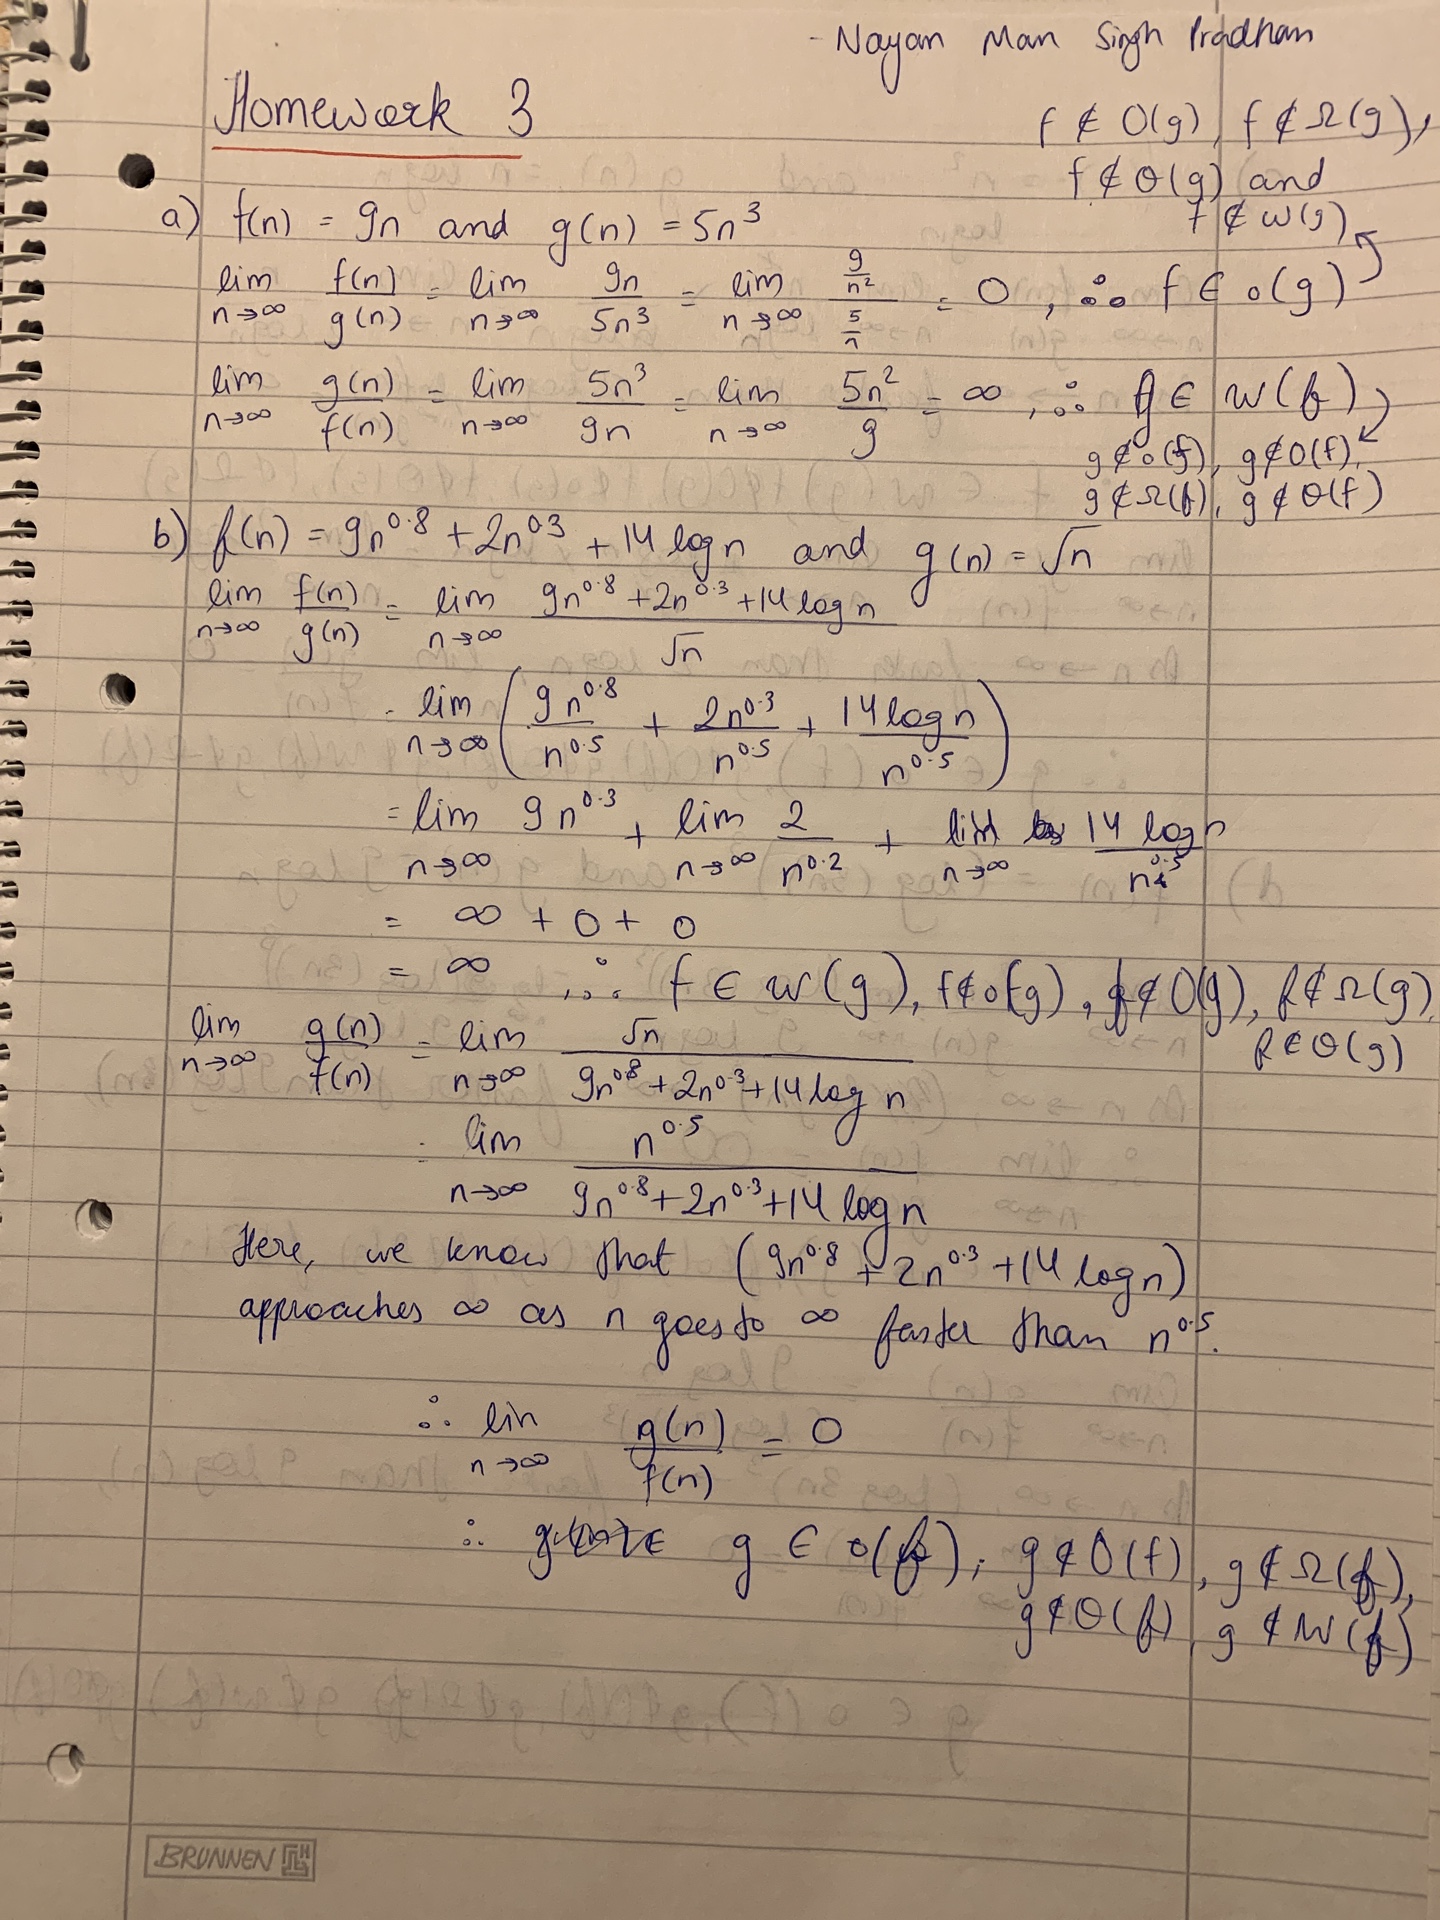 - Nayan Man Singh Pradhan
Homework 3
f ∉ O(g), f ∉ Ω(g),
f ∉ Θ(g) and
f ∉ ω(g)
a) f(n) = 9n and g(n) = 5n³
lim n→∞ f(n)/g(n) = lim n→∞ 9n/5n³ = lim n→∞ (9/n²)/(5/n) = 0, ∴ f ∈ o(g)
lim n→∞ g(n)/f(n) = lim n→∞ 5n³/9n = lim n→∞ 5n²/9 = ∞, ∴ g ∈ ω(f)
g ∉ o(f), g ∉ O(f),
g ∉ Ω(f), g ∉ Θ(f)
b) f(n) = 9n^0.8 + 2n^0.3 + 14 log n and g(n) = √n
lim n→∞ f(n)/g(n) = lim n→∞ (9n^0.8 + 2n^0.3 + 14 log n)/√n
= lim n→∞ (9n^0.8/n^0.5 + 2n^0.3/n^0.5 + 14 log n/n^0.5)
= lim n→∞ 9n^0.3 + lim n→∞ 2/n^0.2 + lim n→∞ 14 log n/n^0.5
= ∞ + 0 + 0
= ∞, ∴ f ∈ ω(g), f ∉ o(g), f ∉ O(g), f ∉ Ω(g),
f ∉ Θ(g)
lim n→∞ g(n)/f(n) = lim n→∞ √n/(9n^0.8 + 2n^0.3 + 14 log n)
= lim n→∞ n^0.5/(9n^0.8 + 2n^0.3 + 14 log n)
Here, we know that (9n^0.8 + 2n^0.3 + 14 log n)
approaches ∞ as n goes to ∞ faster than n^0.5.
∴ lim n→∞ g(n)/f(n) = 0
∴ g ∈ o(f), g ∉ O(f), g ∉ Ω(f),
g ∉ Θ(f), g ∉ ω(f)
BRUNNEN